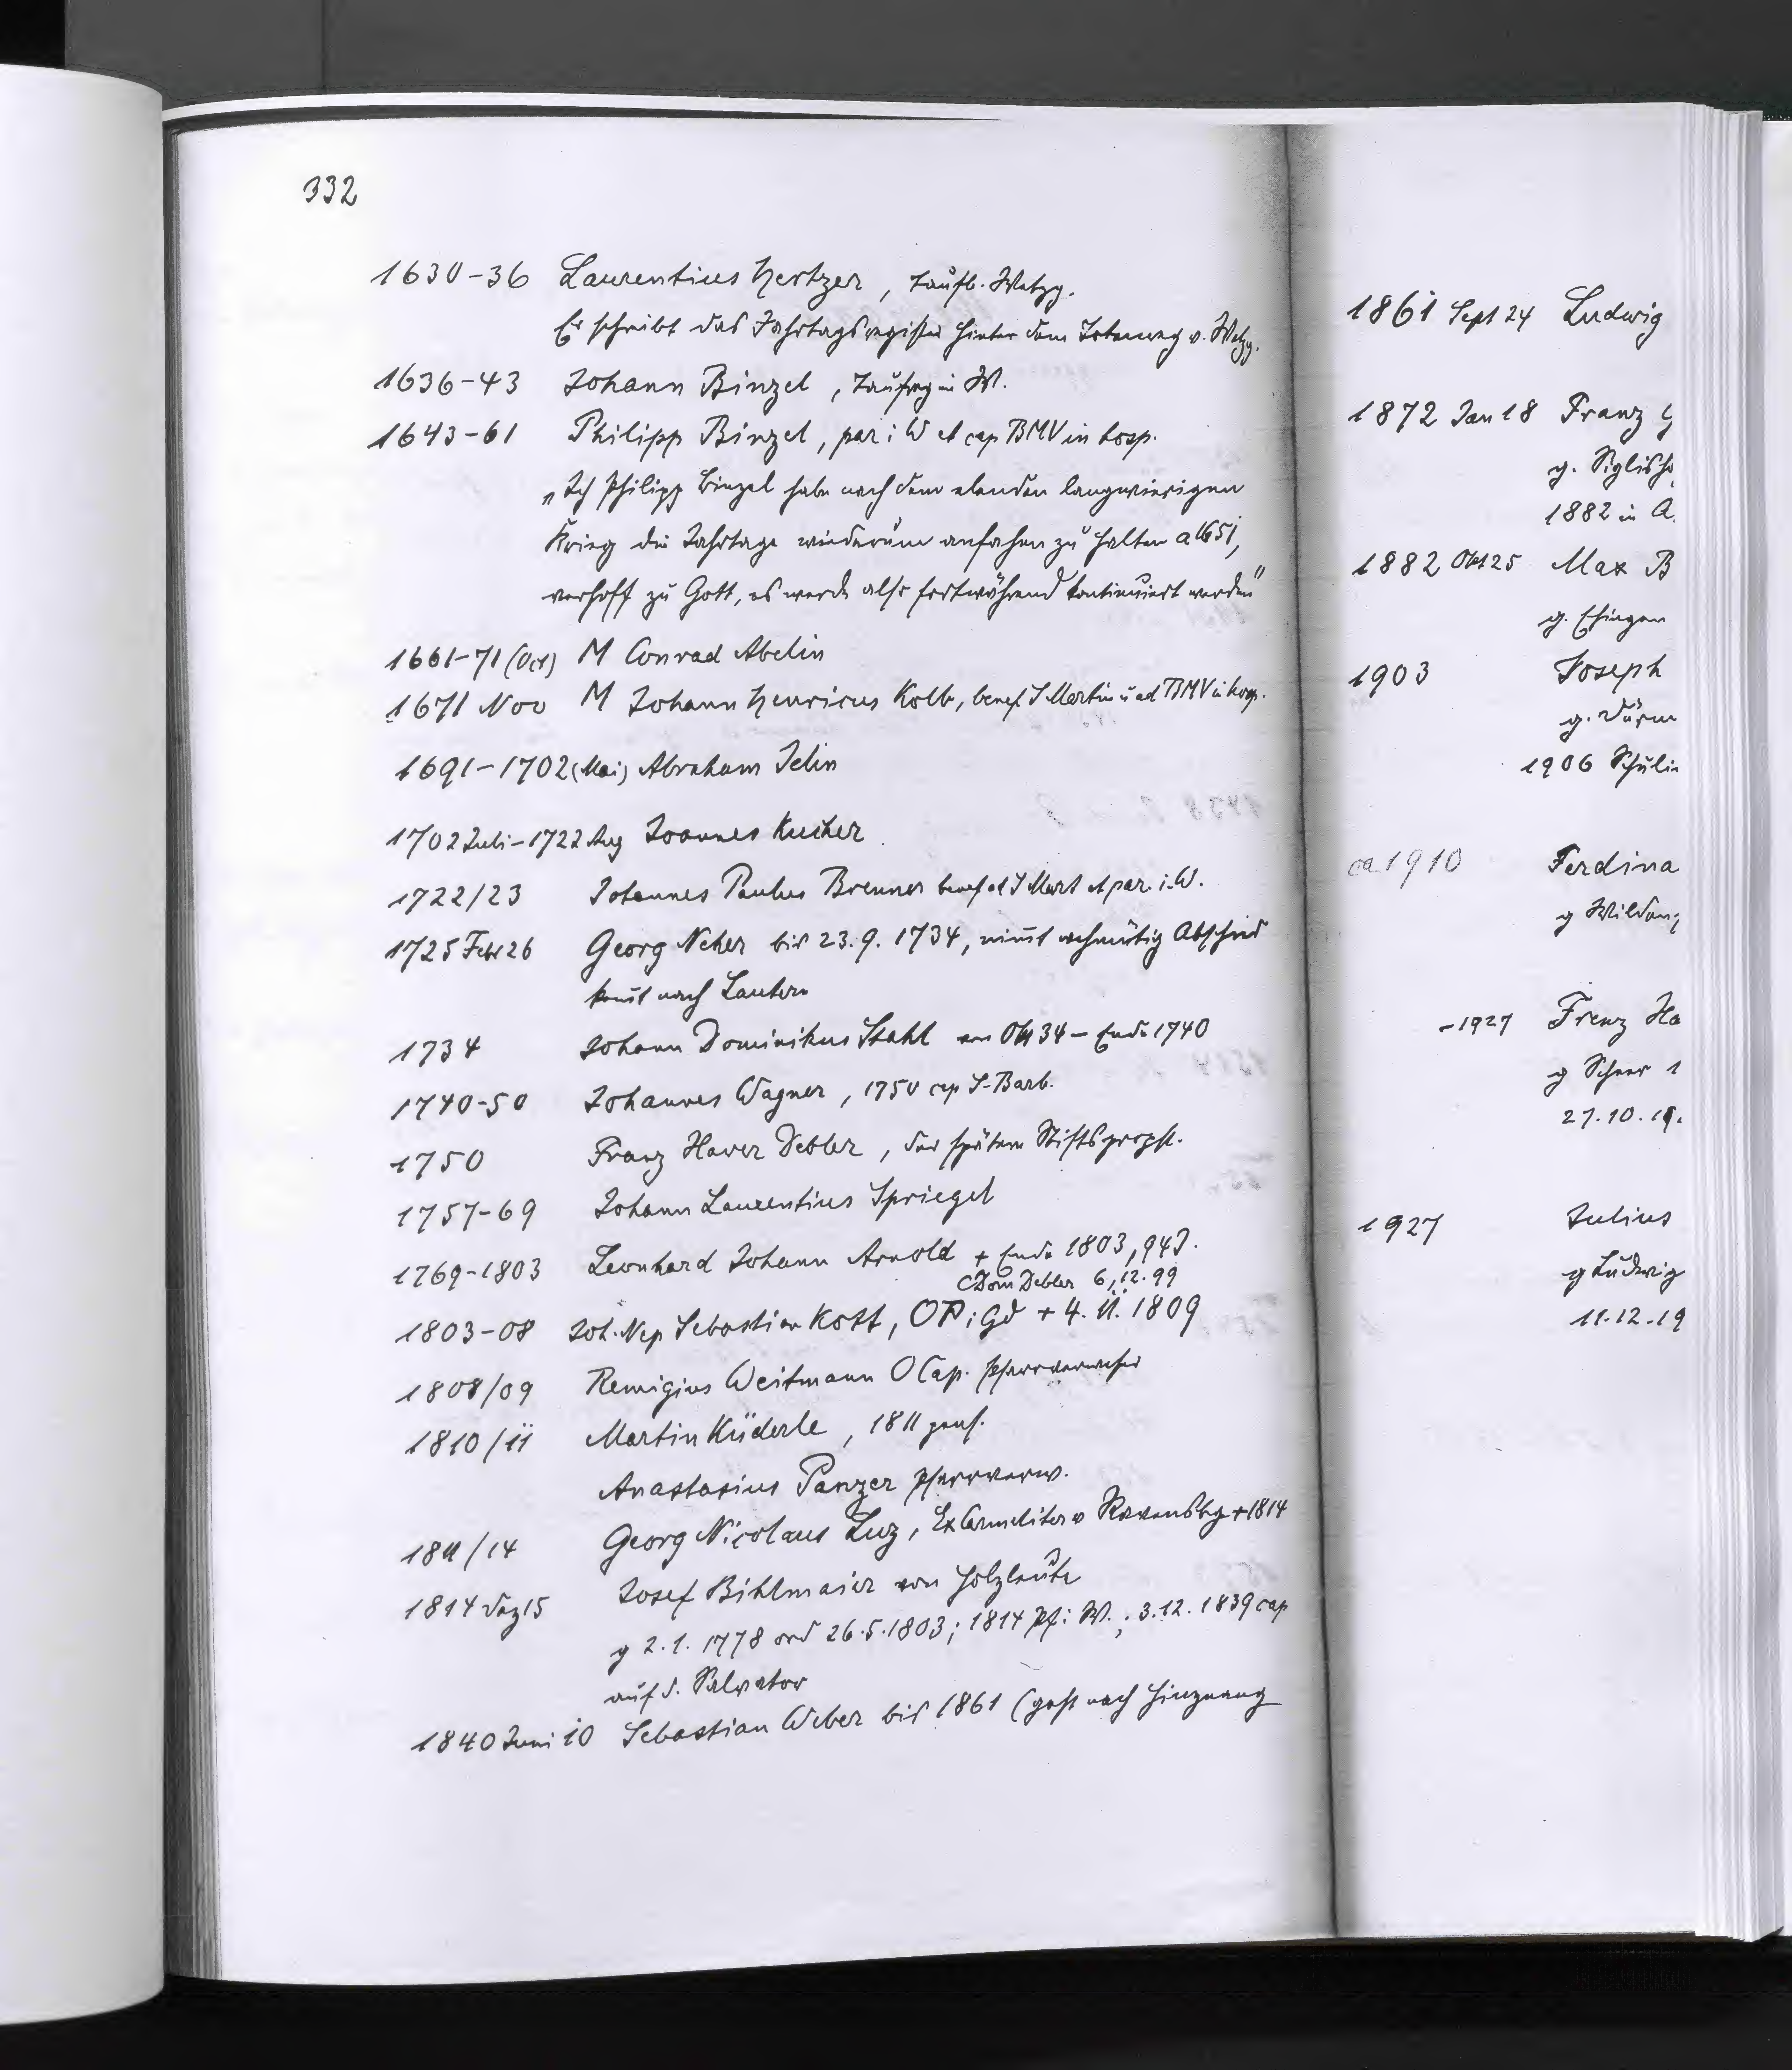 332
1630-36 Laurentius Hertzer, Taufb. Wetzg.
Er schreibt das Jahrtagsregister hinter dem Totenreg v. Wetzg.
1636-43 Johann Binzel, Taufreg in W.
1643-61 Philipp Binzel, par i W et cap BMV in hosp.
„Ich Philipp Binzel habe nach dem elenden langwierigen
Krieg die Jahrtage wiederum anfahen zu halten a 1651,
verhoff zu Gott, es werde also fortwährend kontinuiert werden"
1661-71 (Oct) M Conrad Abelin
1671 Nov M Johann Henricus Kolb, benef S Martin u ad BMV in hosp.
1691-1702 (Mai) Abraham Jelin
1702 Juli-1722 Aug Joannes Kucher
1722/23 Johannes Paulus Brenner benef ad S Mart et par. i. W.
1725 Febr 26 Georg Neher bis 23.9.1734, nimt wehmütig Abschied
komt nach Lautern
1734 Johann Dominikus Stahl von Okt 34 - Ende 1740
1740-50 Johannes Wagner, 1750 cap S. Barb.
1750 Franz Xaver Debler, der spätere Stiftspropst.
1757-69 Johann Laurentius Spriegel
1769-1803 Leonhard Johann Arnold + Ende 1803, 94J.
Dom Debler 6.12.99
1803-08 Joh. Nep Sebastian Kott, OP i Gd + 4.11.1809
1808/09 Remigius Weitmann O Cap. Pfarrverweser
1810/11 Martin Küderle, 1811 pens.
Anastasius Panzer Pfarrverw.
1811/14 Georg Nicolaus Luz, Exkarmeliter v Ravensbg +1814
1814 Dez 15 Josef Bihlmaier von Holzleute
g 2.1.1778 ord 26.5.1803; 1814 Pf. i. W.; 3.12.1839 cap
auf d. Salvator
1840 Juni 10 Sebastian Weber bis 1861 (geht nach Hinznang
1861 Sept 24 Ludwig
1872 Jan 18 Franz
g. Siglish
1882 in A.
1882 Okt 25 Max B
g. Ehingen
1903 Joseph
g. Dürm
1906 Schuli
ca 1910 Ferdina
g Wilden
-1927 Franz Xa
g Scheer 1
27.10.19.
1927 Julius
g Ludwig
11.12.19